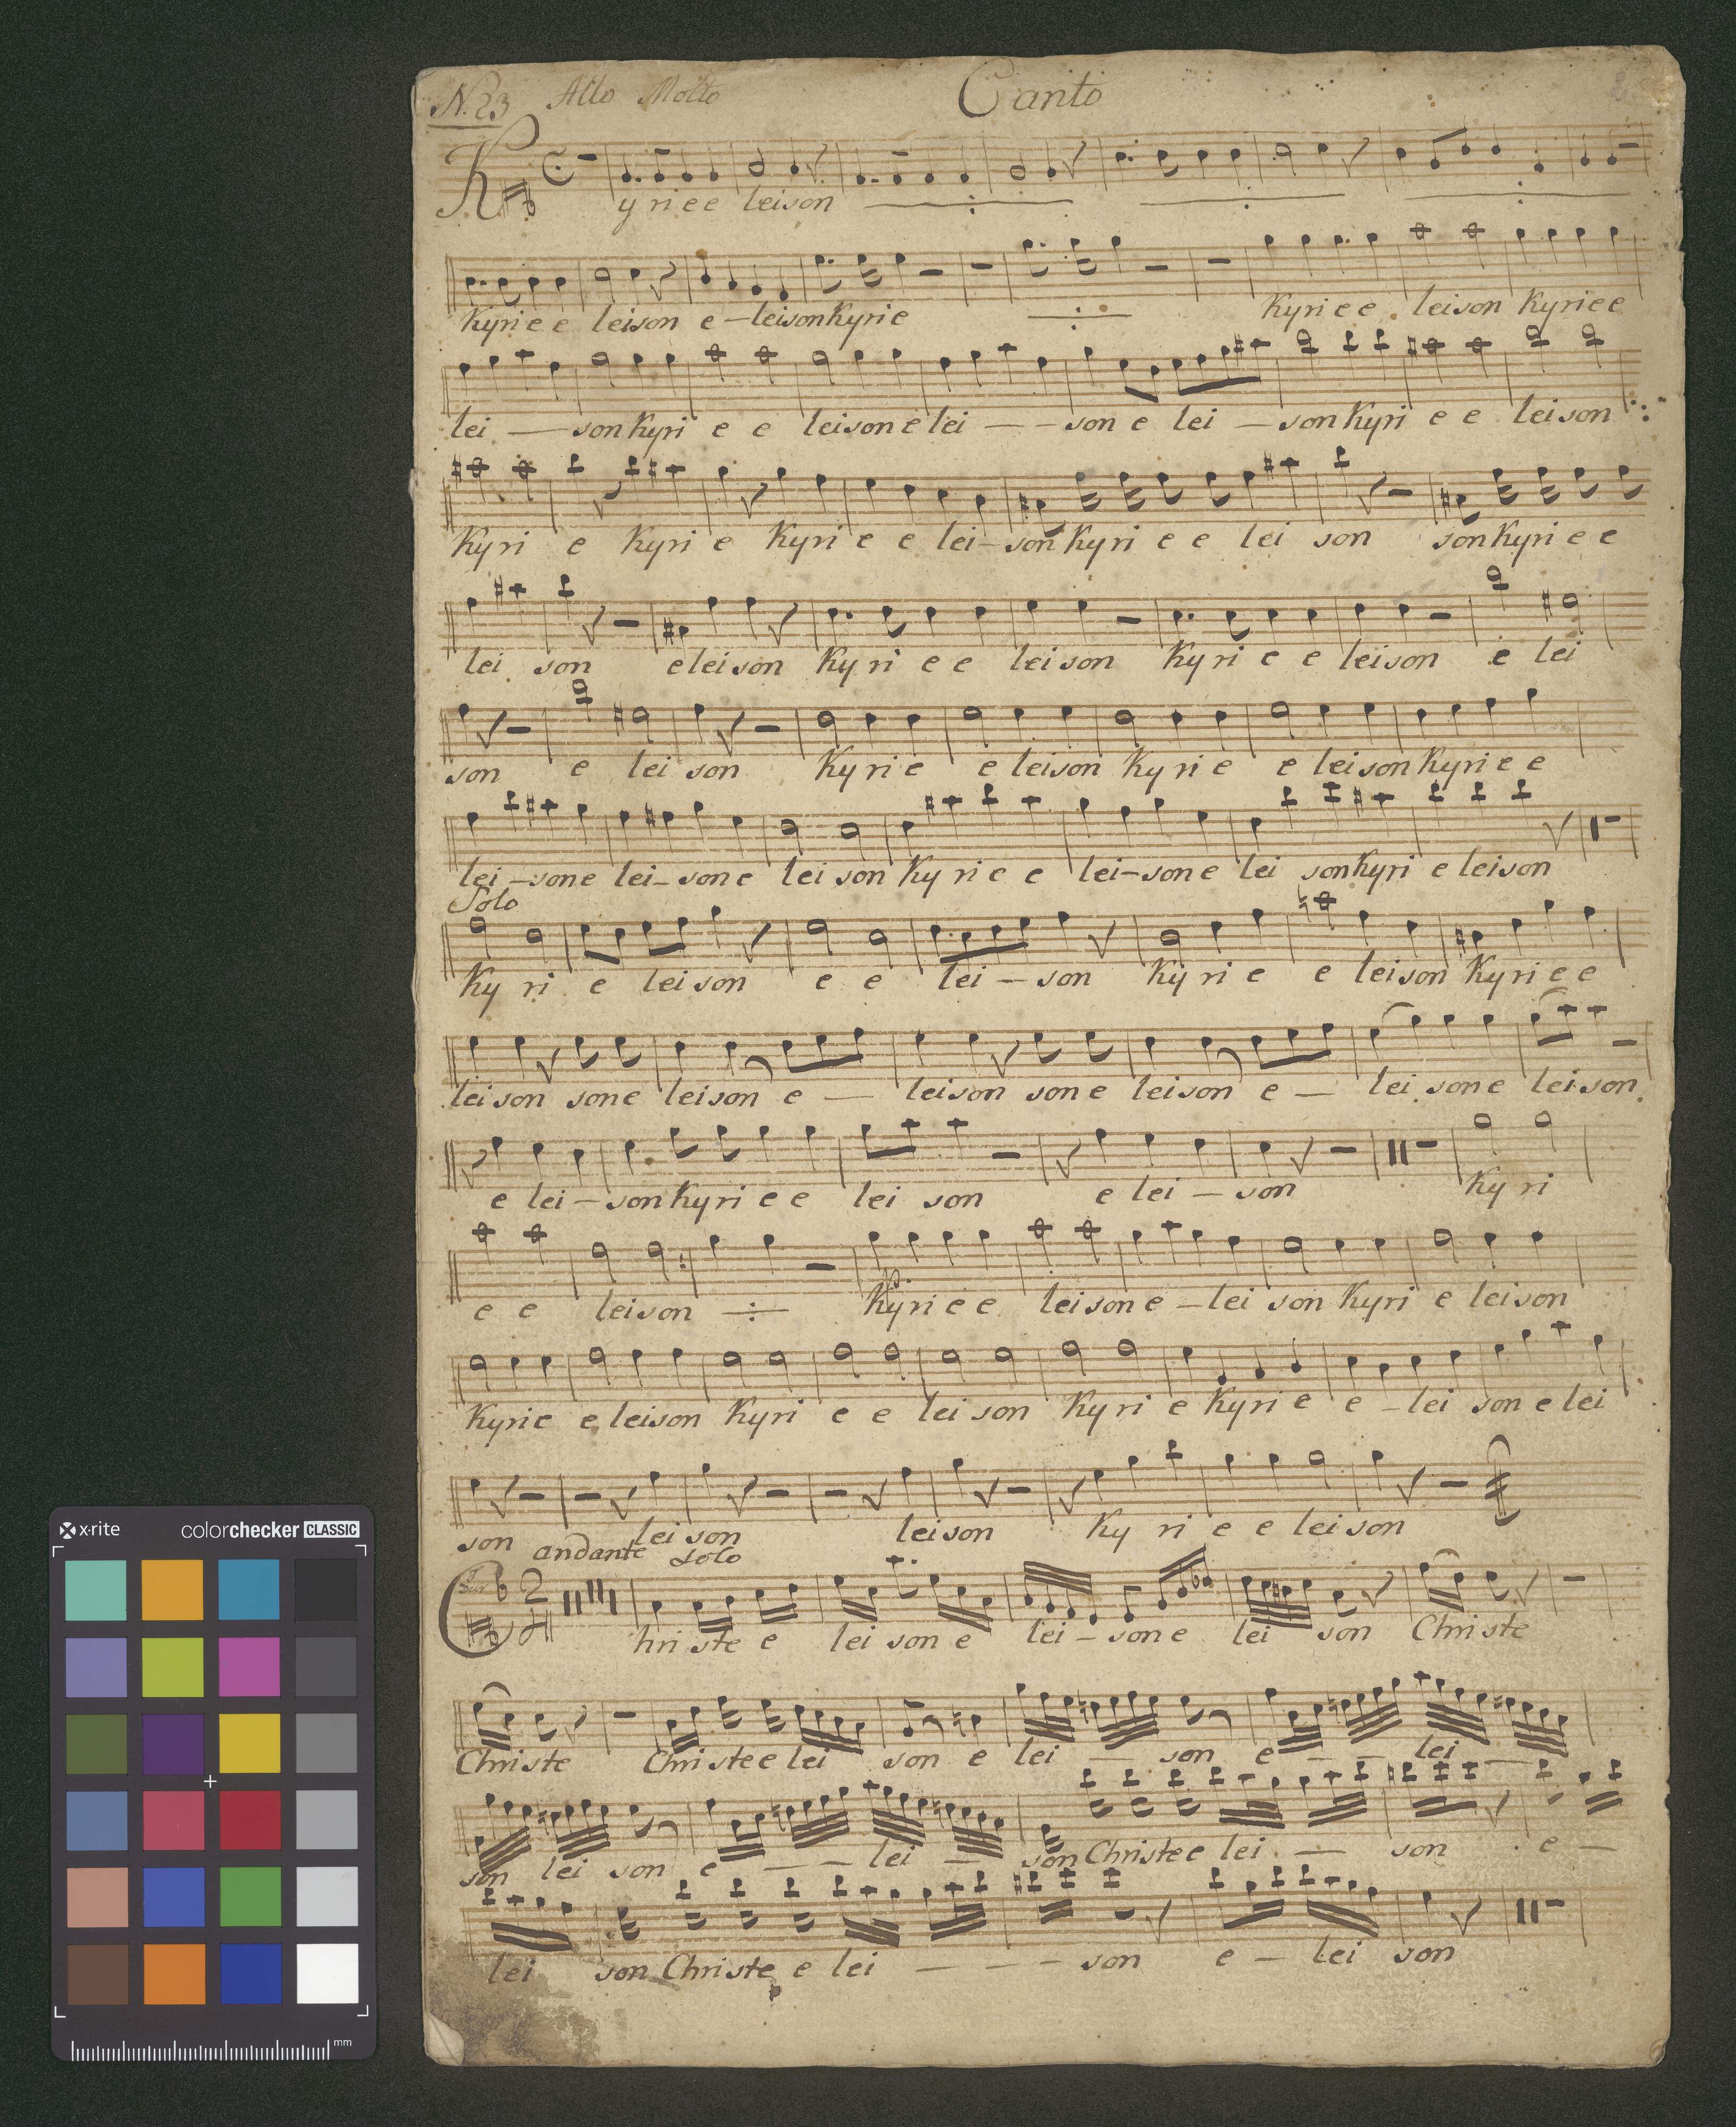 N. 23 Allo Molto Canto
Kyrie e leison
Kyrie e leison e - leison Kyrie Kyrie e leison Kyrie e
lei - son Kyri e e leison e lei - - son e lei - son Kyri e e leison
Kyri e Kyri e Kyri e e lei - son Kyri e e lei son son Kyri e e
lei son e leison Kyri e e leison Kyri e e leison e lei
son e lei son Kyrie e leison Kyrie e leison Kyrie e
lei - son e lei - son e lei son Kyri e e lei - son e lei son Kyri e leison
Solo
Kyri e leison e e lei - son Kyrie e leison Kyrie e
leison son e leison e - leison son e leison e - lei son e leison
e lei - son Kyri e e lei son e lei - son Kyri
e e leison p. Kyri e e leison e - lei son Kyri e leison
Kyrie e leison Kyri e e leison Kyri e Kyri e e - lei son e lei
son lei son leison Kyri e e leison
andante Solo
2 Christe e lei son e lei - son e lei son Christe
4
Christe Christe e lei son e lei - son e - - lei -
son lei son e - - lei - son Christe e lei - son e -
lei son Christe e lei - - - son e - lei son
x·rite colorchecker CLASSIC
mm